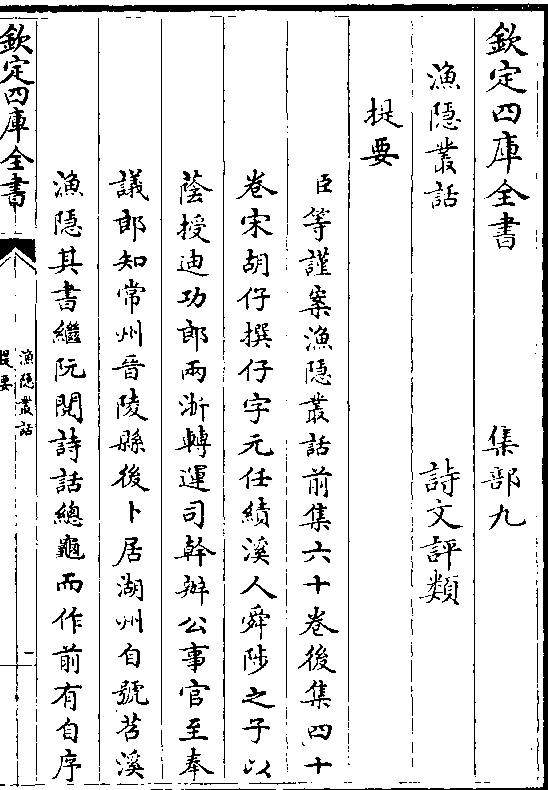 欽定四庫全書　集部九
漁隱叢話　詩文評類
提要
臣等謹案漁隱叢話前集六十卷後集四十
卷宋胡仔撰仔字元任績溪人舜陟之子以
蔭授迪功郎兩浙轉運司幹辦公事官至奉
議郎知常州晉陵縣後卜居湖州自號苕溪
漁隱其書繼阮閱詩話總龜而作前有自序
欽定四庫全書
漁隱叢話
提要
一